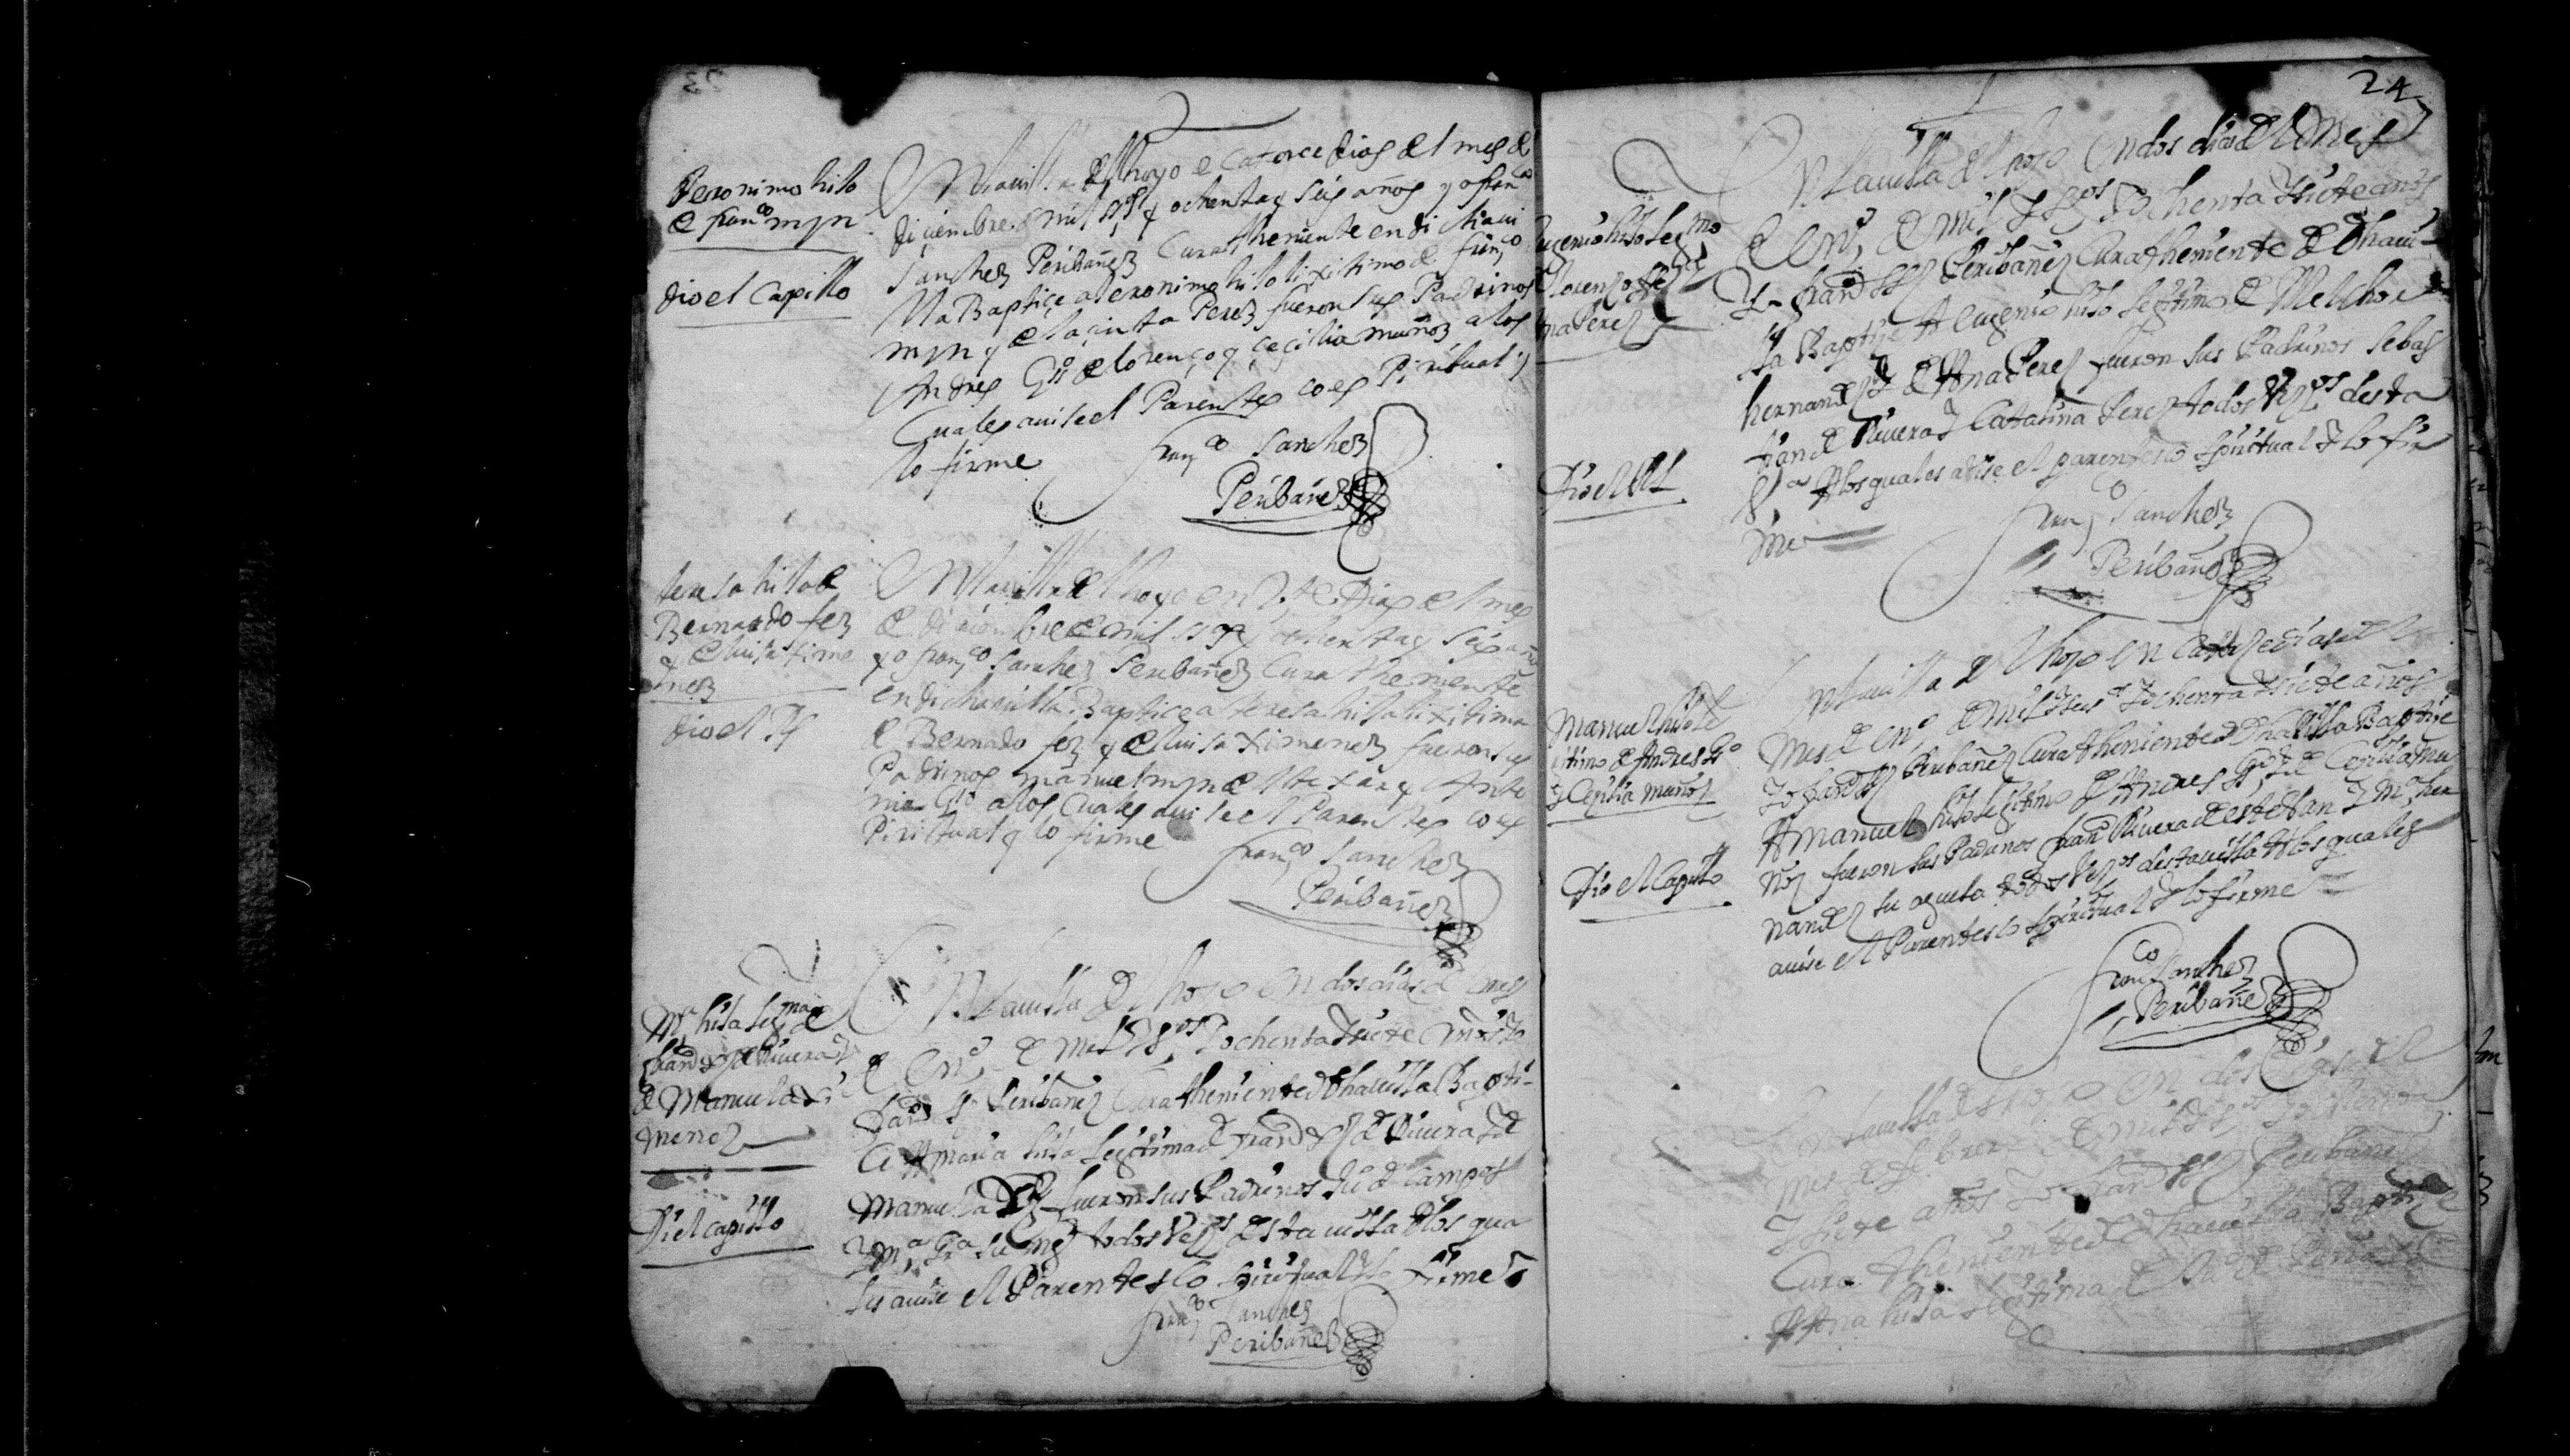 Jeronimo hiJo
de franco mrn
dio el Capillo
En la villa del hoyo e Catorce dias del mes de
diçiembre de mil ssos y ochenta y seis años yo franco
Sanchez Peribañez Cura theniente en dicha vi
lla Baptiçe a Jeronimo hiJo lixitimo de franco
mrn y de Jaçinta Perez fueron sus Padrinos
Andres Gro de lorenço y çeçilia muñoz a los
Cuales avise el Parentesco espiritual y
lo firme
franco Sanchez
Peribañez
teresa hiJa de
Bernardo fez
y de luisa xime
nez
dio el
En la villa del hoyo en dias del mes
de diciembre de mil ssos y ochenta y seis años
yo franco Sanchez Peribañez Cura theniente
en dicha villa Baptice a teresa hiJa lixitima
de Bernado fez y de luisa ximenez fueron sus
Padrinos manuel mrn de y Anto
nia Gro a los Cuales avise el Parentesco es
piritual y lo firme
franco Sanchez
Peribañez
Ma hiJa legma de
frando de Rivera y
de Manuela xi
menez
Di el capillo
En la villa del hoyo en dos dias del mes
de Eno de mil y ssos y ochenta y siete años yo
frando Peribañez Cura theniente de dha villa Bapti
ce A maria hiJa legitima de frando de Rivera y de
Manuela fueron sus Padrinos Ju de Campos
y Ma Gra su muger todos vezos desta villa A los qua
les avise el Parentesco spiritual y lo firme
franco Sanchez
Peribañez
24
Eugenio hiJo legmo
Ana Perez
Dio el
En la villa del hoyo en dos dias del Mes
de Eno de mil y ssos y ochenta y siete años
Yo frando Peribañez Cura theniente de dha vi
lla Baptize A eugenio hiJo legitimo de Melchor
hernandez y de Ana Perez fueron sus Padrinos Sebas
tian de Rivera y Catalina Perez todos vezos desta
va A los quales avise el parentesco spiritual y lo fir
me
franco Sanchez
Peribañez
Manuel hiJo le
itimo de Andres Go
y Cezilia muñoz
Dio el Capillo
En la villa del hoyo en Catorze dias del
Mes de Eno de mil y seisos y ochenta y siete años
Yo frando Peribañez Cura theniente de dha villa Baptize
A Manuel hiJo legitimo de Andres Go y de Cezilia Mu
ñoz fueron sus Padrinos frando Rivera de esteban y Ma her
nandez su aguela todos vezos desta villa A los quales
avise el Parentesco spiritual y lo firme
franco Sanchez
Peribañez
En la villa del hoyo en dos dias del
mes de febrero de mil y ssos y ochenta
y siete años Yo frando Peribañez
Cura theniente de dha villa Baptize
A Ana hiJa legitima de Ju de